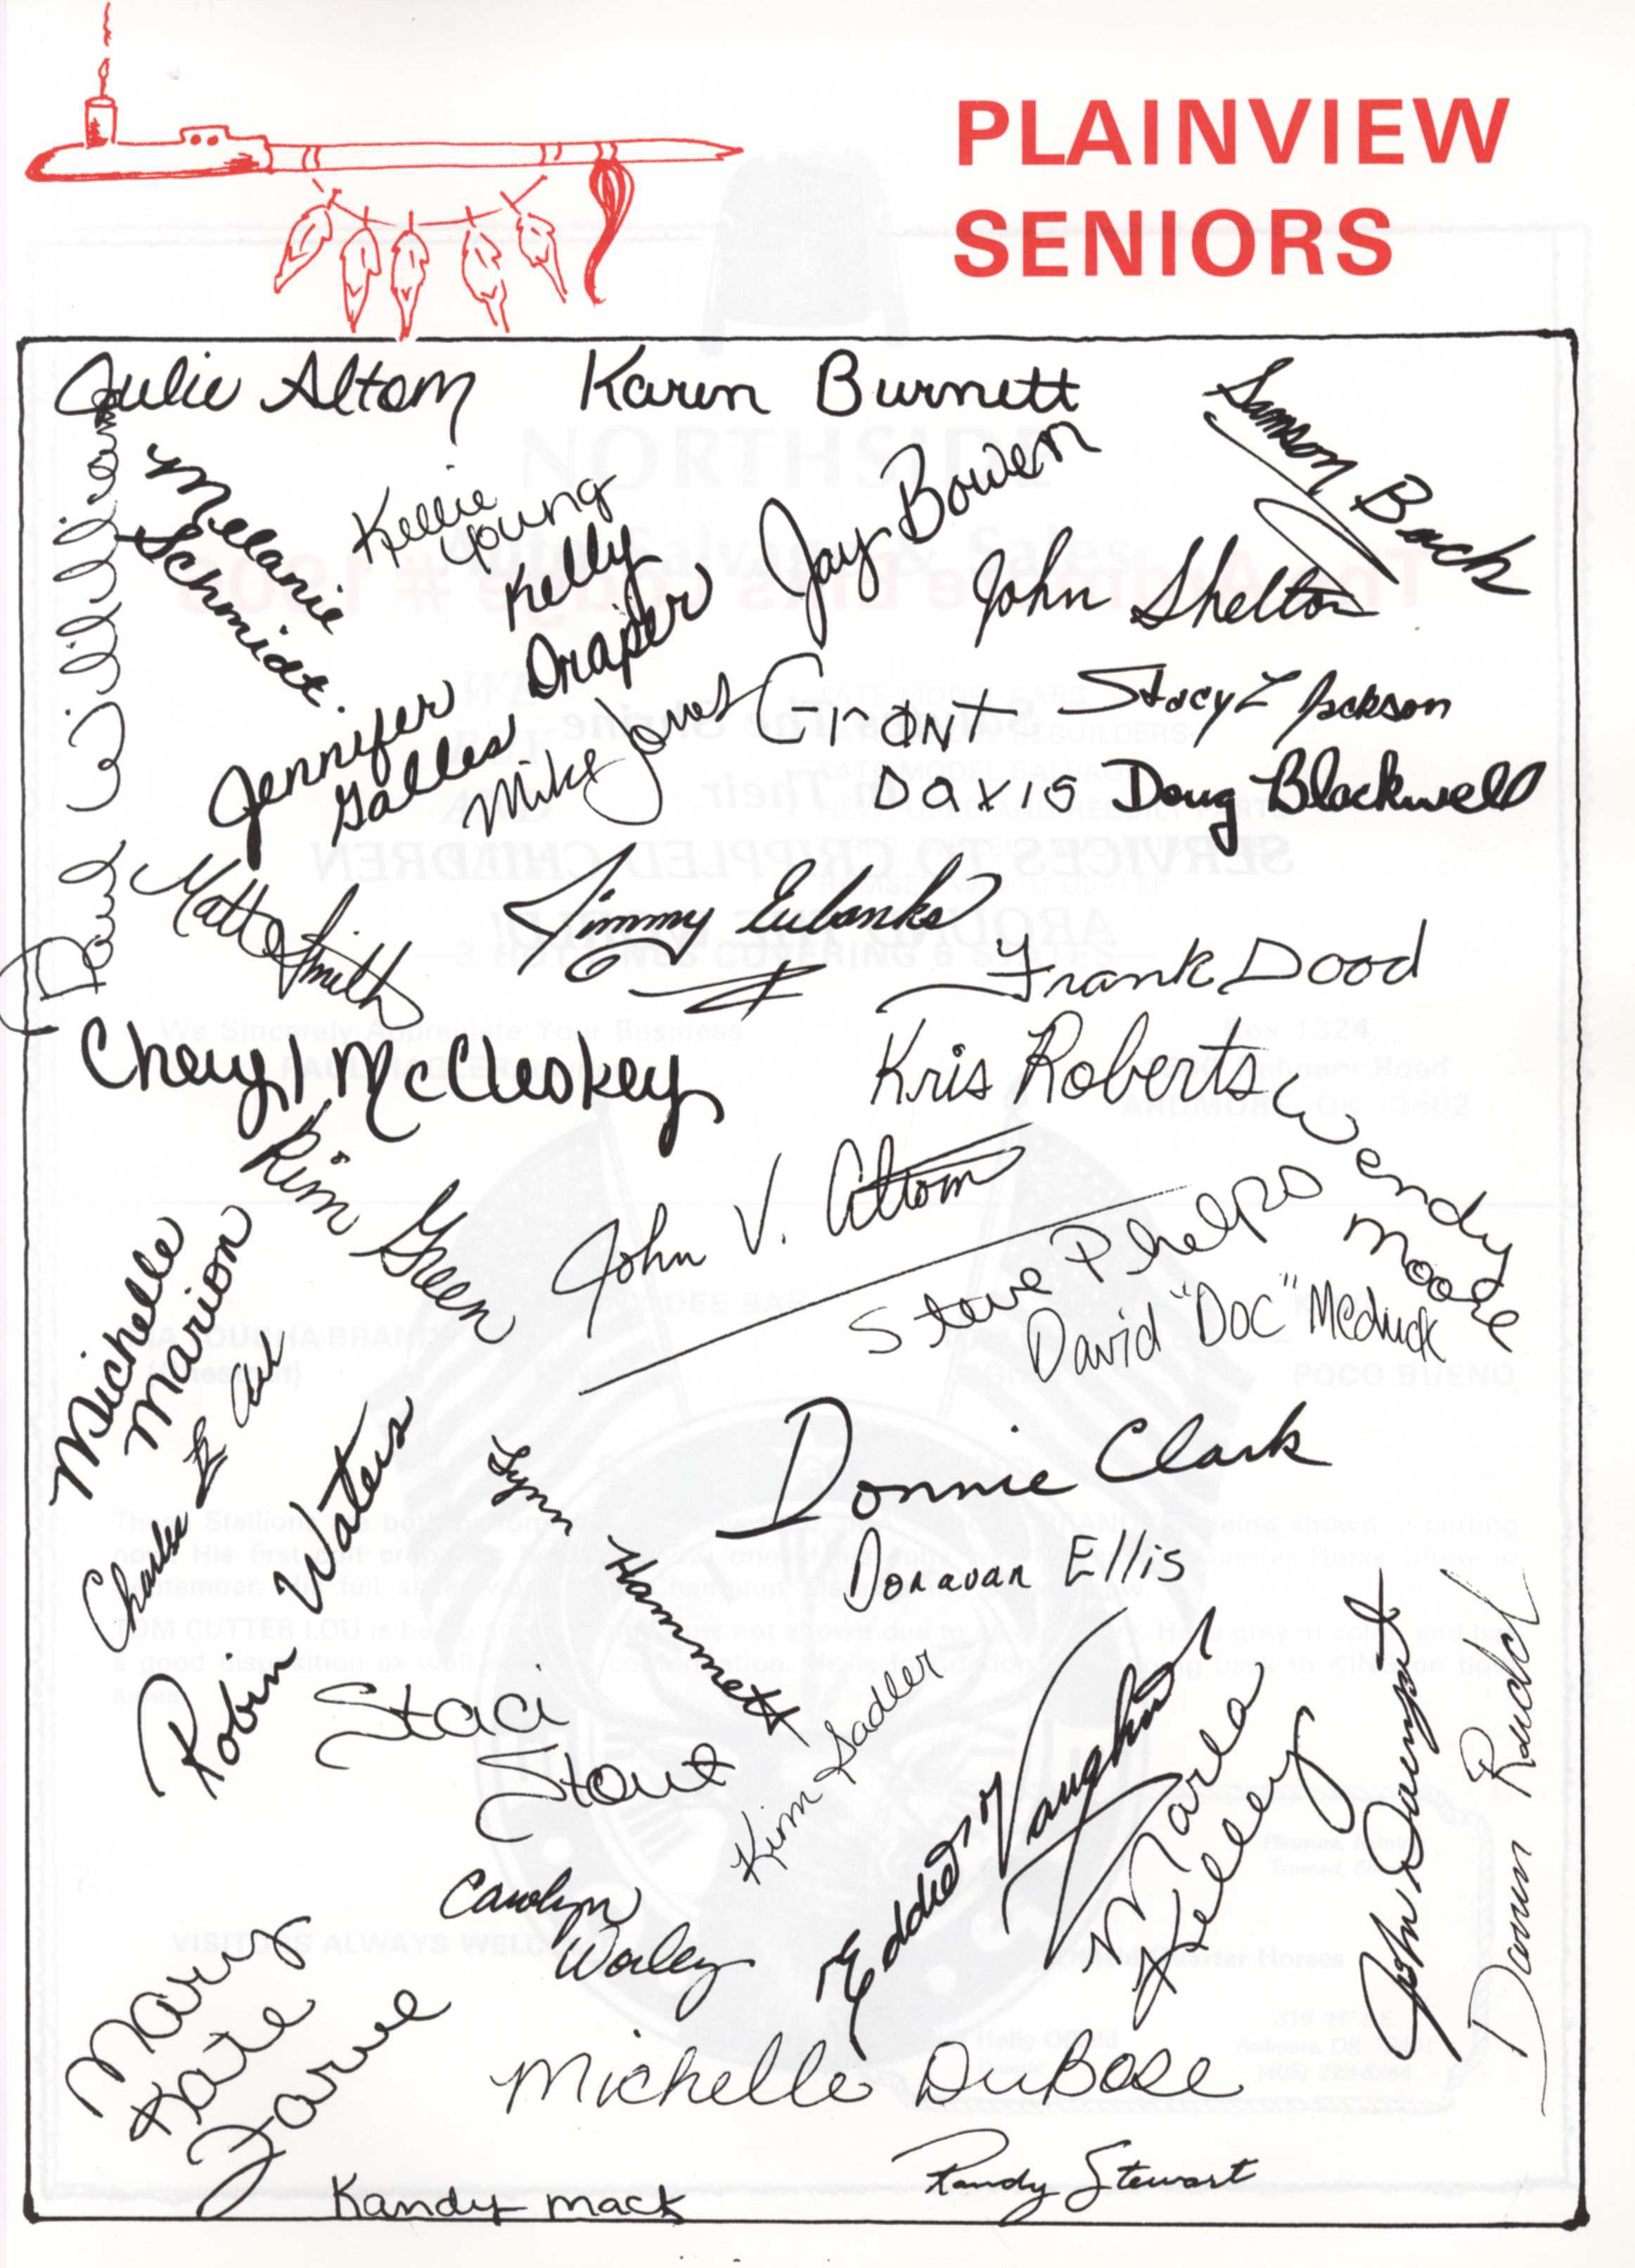 PLAINVIEW
SENIORS
Julie Altom
Karen Burnett
Samson Back
Paul Williams
Melanie
Schmidt
Kellie
Young
Kelly
Draper
Jay Bowen
John Shelton
Jennifer
Galles
Mike Jones
Grant
Davis
Stacy L Jackson
Doug Blackwell
Matt Smith
Jimmy Eubanks
Frank Dood
Cheryl McCleskey
Kris Roberts
Wendy
Moore
Kim Green
John V. Altom
Steve Phelps
David "Doc" Meduck
Michelle
Marion
Charles
Robin Waters
Lynn Hammett
Donnie Clark
Donavan Ellis
Staci
Stout
Kim Sadler
Eddie Vaughn
Marla
Kelley
John
Dawn
Carolyn
Worley
Mary
Kate
Zarve
Michelle DuBose
Kandy Mack
Randy Stewart